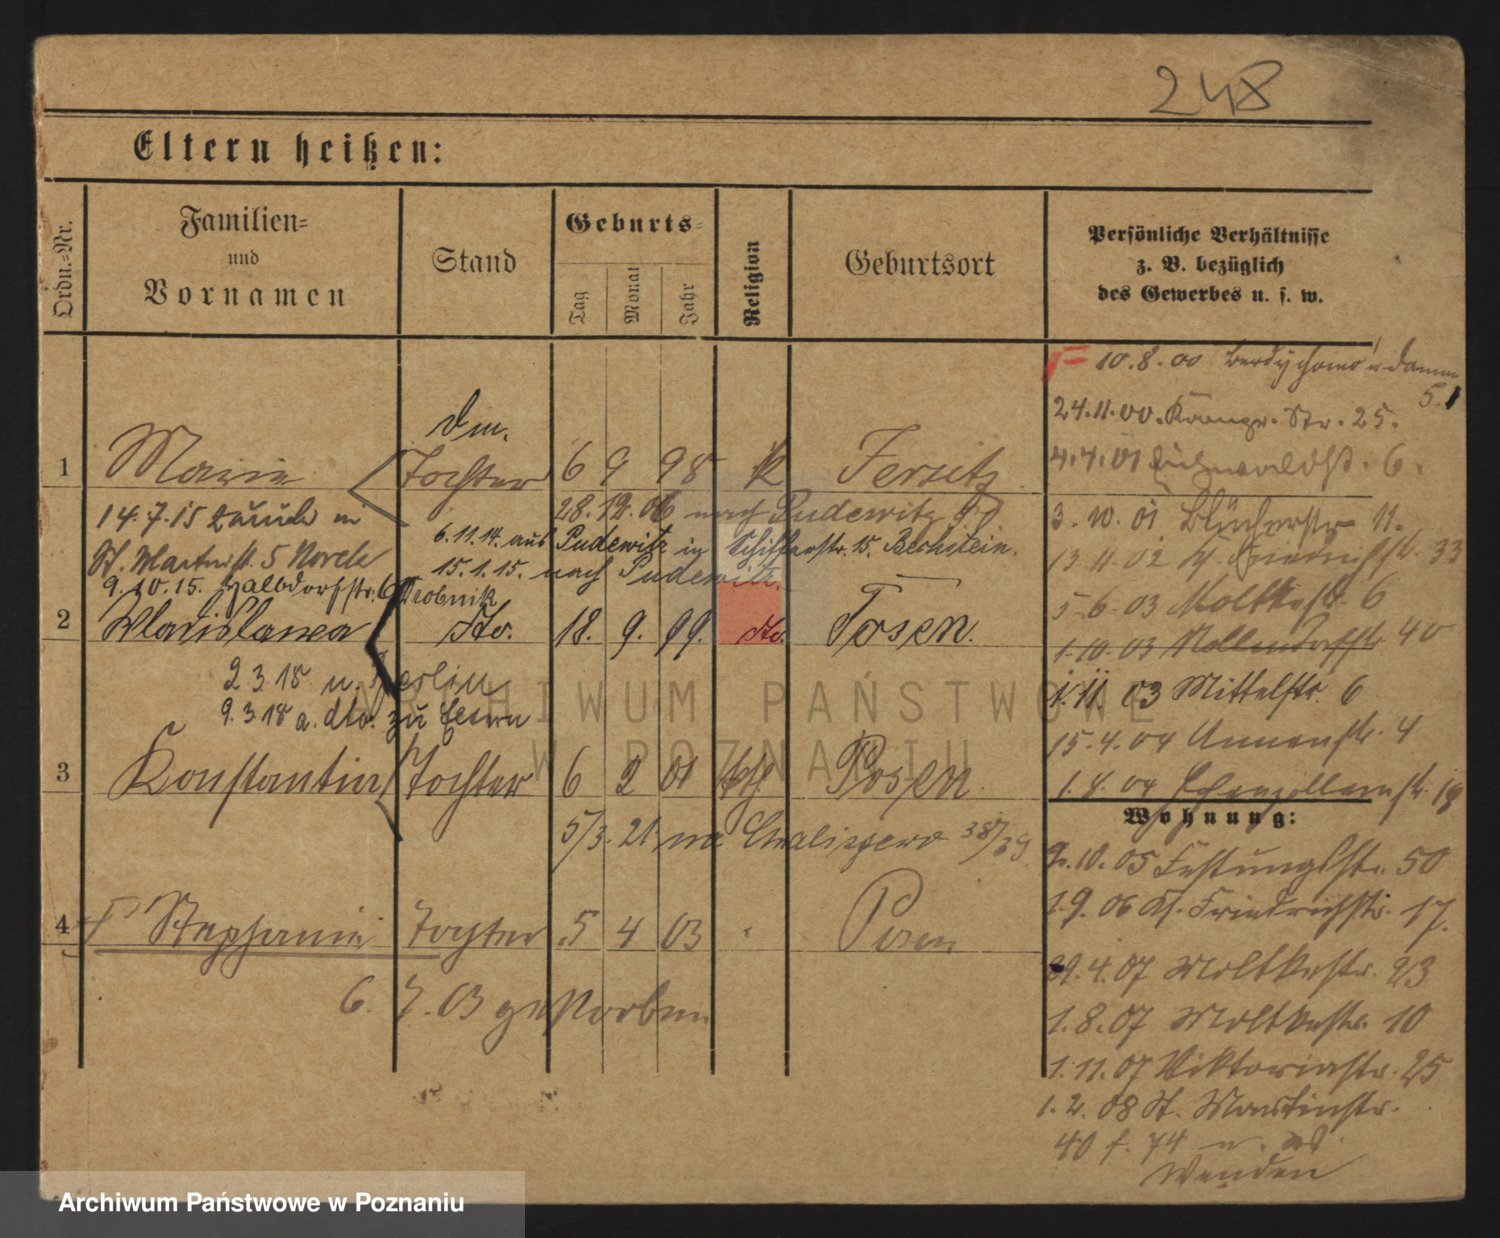 248
Eltern heißen:
Ordn.-Nr.
Familien-
und
Vornamen
Stand
Geburts-
Tag
Monat
Jahr
Religion
Geburtsort
Persönliche Verhältnisse
z. B. bezüglich
des Gewerbes u. s. w.
10.8.00 Berdychowo'er Damm
5.
24.11.00. Str. 25.
dm.
1 Marie Tochter 6 9 98 k Jersitz
4.4.01 Eichwaldst. 6.
28.12.06 nach Pudewitz
14.7.15 zurück in
3.10.01 Blücherstr 11.
6.11.14. aus Pudewitz in Schifferstr. 15. Bechstein.
St. Martinst. 5
13.11.02 Kl. 33
15.1.15. nach Pudewitz.
9.10.15. Halbdorfstr. 6 Drobnik
5.6.03 Moltkestr. 6
2 Wladislawa dto. 18. 9. 99. dto. Posen.
1.10.03 Nollendorfstr 40
2.3.18 n. Berlin
1.11.03 Mittelstr. 6
9.3.18 a. dto. zu Eltern
15.4.04 Annenstr. 4
3 Konstantin Tochter 6 2 01 kth Posen.
1.4.04 Hohenzollernstr. 19
Wohnung:
5/3.21 38/39
2.10.05 Festungsstr. 50
1.9.06 Kl. Friedrichstr. 17.
4 Stephanie Tochter 5 4 03 Posen
29.4.07 Moltkestr. 23
6.7.03 gestorben
1.8.07 Moltkestr. 10
1.11.07 Viktoriastr. 25
1.2.08 St. Martinstr.
40 f. 74
Wenden
ARCHIWUM PAŃSTWOWE
W POZNANIU
Archiwum Państwowe w Poznaniu